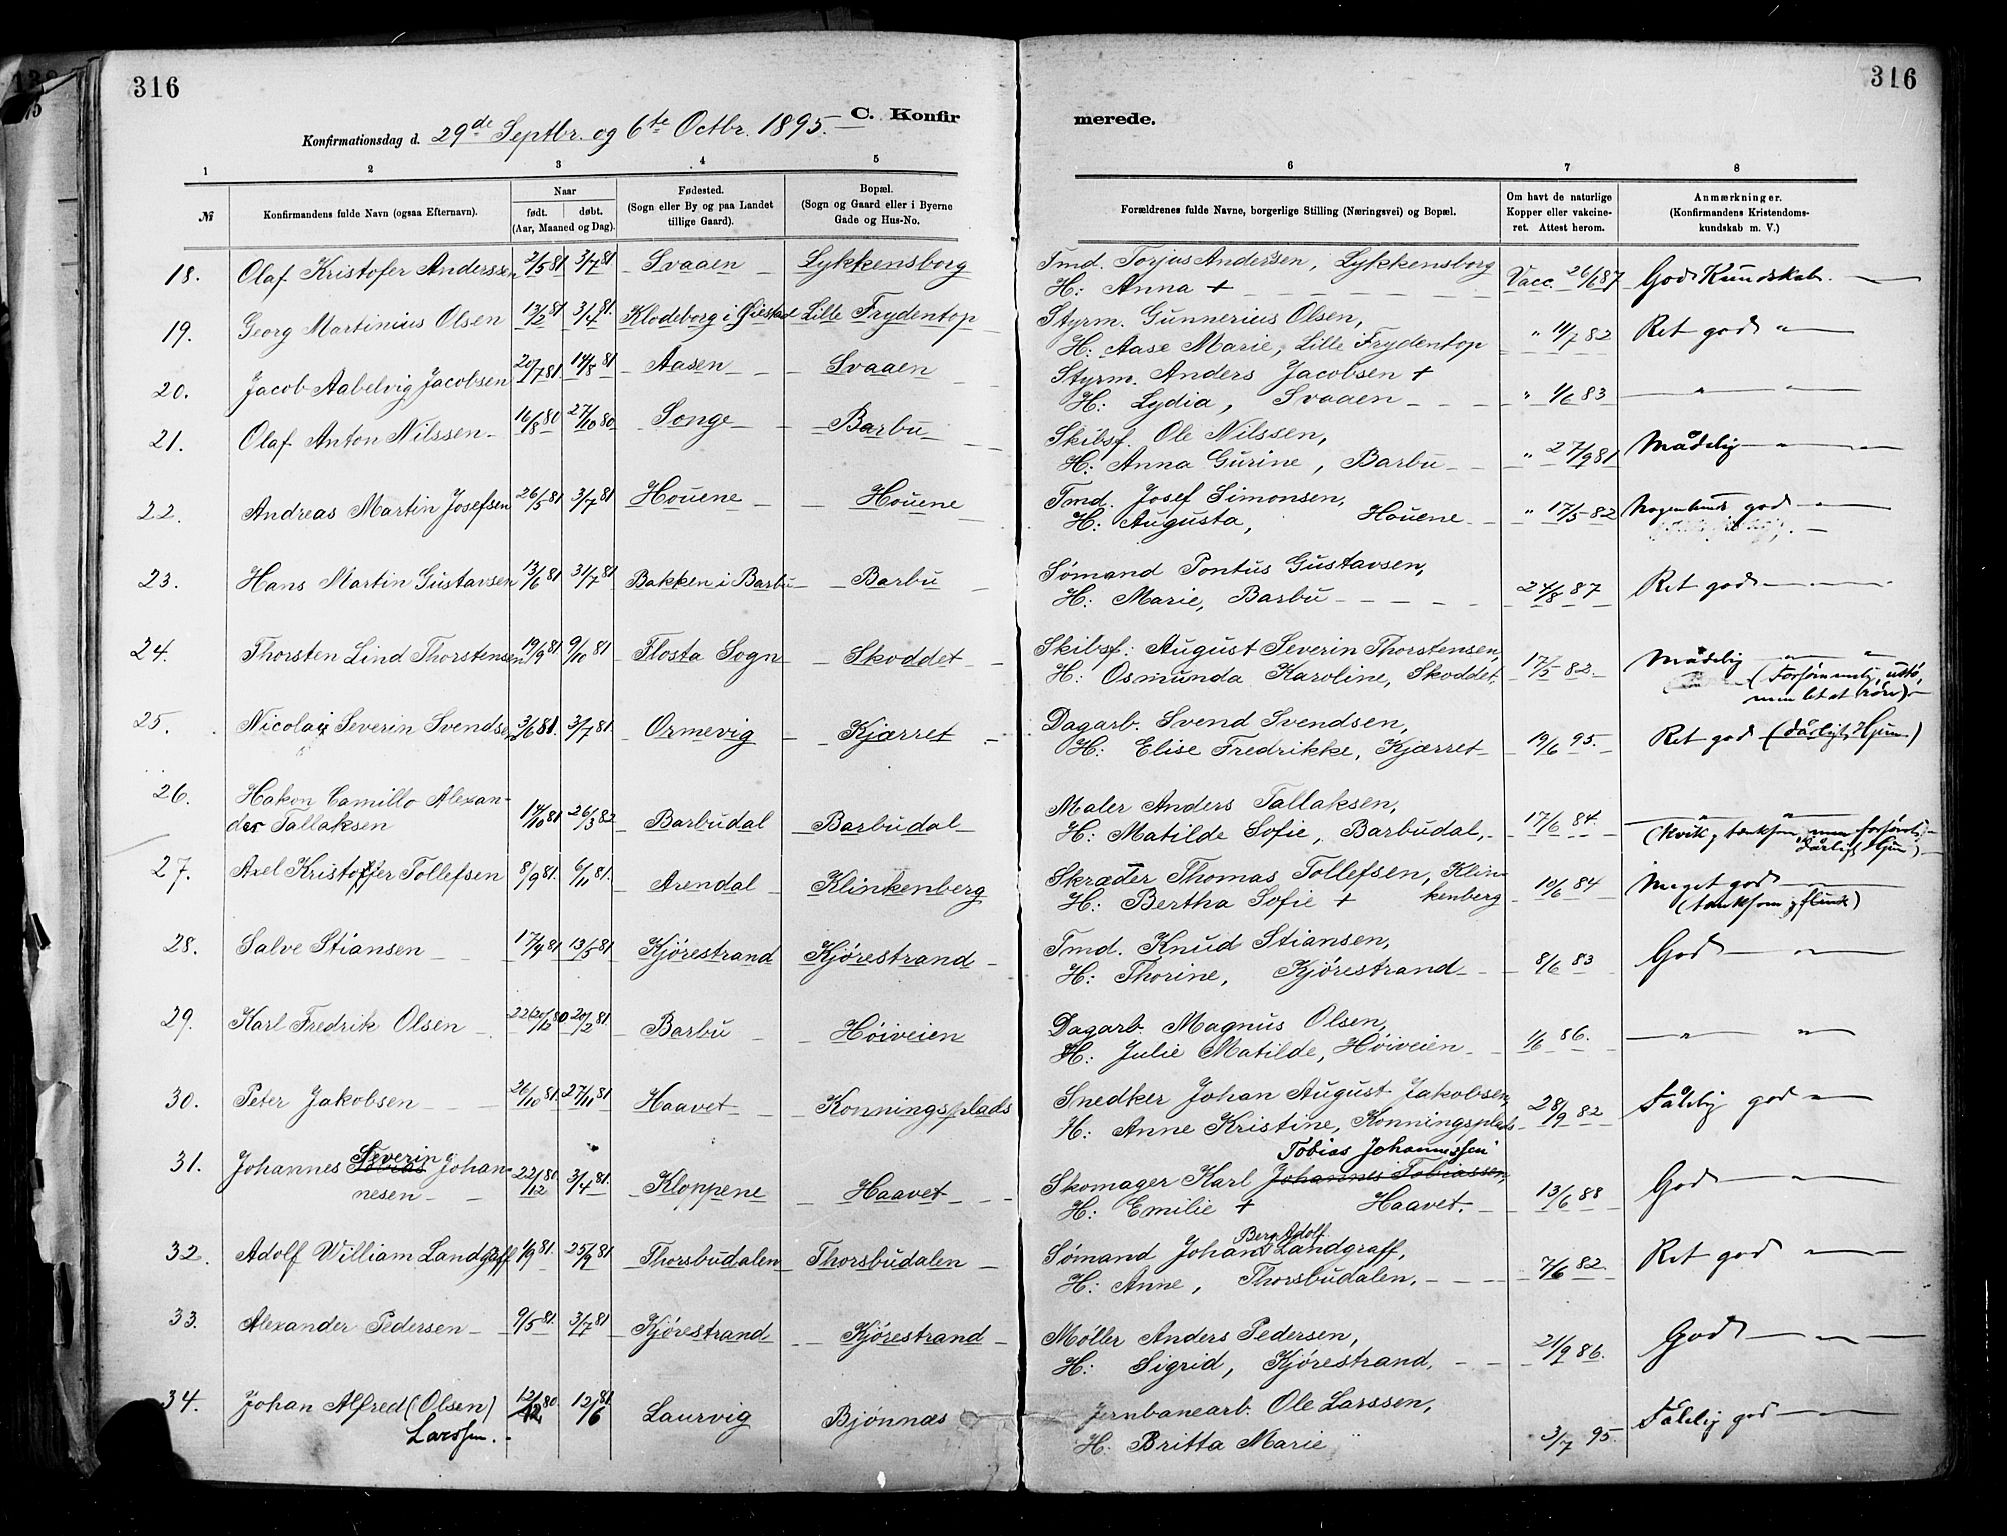 316
316
Konfirmationsdag d. 29de Septbr. og 6te Octbr. 1895. C. Konfir
merede.
1 2 3 4 5 6 7 8
№ Konfirmandens fulde Navn (ogsaa Efternavn). Naar født. døbt. (Aar, Maaned og Dag). Fødested. (Sogn eller By og paa Landet tillige Gaard). Bopæl. (Sogn og Gaard eller i Byerne Gade og Hus-No. Forældrenes fulde Navne, borgerlige Stilling (Næringsvei) og Bopæl. Om havt de naturlige Kopper eller vakcineret. Attest herom. Anmærkninger. (Konfirmandens Kristendomskundskab m. V.)
18. Olaf Kristofer Anderssen 2/5 81 3/7 81 Svaaen Lykkensborg Tmd. Torjus Andersen, Lykkensborg
H: Anna + Vacc. 26/6 87 God Kundskab.
19. Georg Martinius Olsen 13/2 81 3/4 81. Klodeborg i Øiestad Lille Frydentop Styrm. Gunnerius Olsen,
H: Aase Marie, Lille Frydentop " 11/7 82 Ret god "
20. Jacob Aabelvig Jacobsen 20/7 81. 14/8 81 Aasen Svaaen Styrm. Anders Jacobsen +
H: Lydia, Svaaen " 1/6 83 " "
21. Olaf Anton Nilssen 16/8 80 27/10 80 Songe Barbu Skibsf. Ole Nilssen,
H: Anna Gurine, Barbu " 27/9 81 Mådelig "
22. Andreas Martin Josefsen 26/5 81 3/7 81 Houene Houene Tmd. Josef Simonsen,
H: Augusta, Houene " 17/5 82 Nogenlunde god "
23. Hans Martin Gustavsen 13/6 81 31/7 81 Bakken i Barbu Barbu Sømand Pontus Gustavsen,
H: Marie, Barbu 24/8 87 Ret god "
24. Thorsten Lind Thorstensen 19/9 81 9/10 81 Flosta Sogn Skoddet Skibsf: August Severin Thorstensen,
H: Osmunda Karoline, Skoddet. 17/5 82. Mådelig "
men let at røre)
25. Nicolai Severin Svendsen 3/6 81 3/7 81. Ormevig Kjærret Dagarb. Svend Svendsen,
H: Elise Fredrikke, Kjærret 19/6 95. Ret god (dårligt Hjem)
26. Hakon Camillo Alexan-
der Tallaksen 14/10 81 26/3 82 Barbudal Barbudal Maler Anders Tallaksen,
H: Matilde Sofie, Barbudal, 17/6 84. " "
(kvik, tænksom, men
dårligt Hjem)
27. Axel Kristoffer Tollefsen 8/9 81. 6/11 81. Arendal Klinkenberg Skræder Thomas Tollefsen, Klin-
H: Bertha Sofie + kenberg 10/6 84 Meget god
(tænksom, flink)
28. Salve Stiansen 17/4 81. 13/5 81. Kjørestrand Kjørestrand Tmd. Knud Stiansen,
H: Thorine, Kjørestrand 8/6 83 God "
29. Karl Fredrik Olsen 80 20/2 81. Barbu Høiveien Dagarb. Magnus Olsen,
H: Julie Matilde, Høiveien 1/6 86. " "
30. Peter Jakobsen 26/10 81. 27/11 81 Haavet Konningsplads Snedker Johan August Jakobsen,
H: Anne Kristine, Konningsplads 28/9 82 Tålelig god "
Severin
Tobias Johannessen
31. Johannes Tobias Johan-
nesen 22/12 80 3/4 81. Kloppene Haavet Skomager Karl Johannes Tobiassen,
H: Emilie + Haavet. 13/6 88 God
Bern Adolf
32. Adolf William Landgraff 1/9 81. 25/9 81. Thorsbudalen Thorsbudalen Sømand Johan Landgraff,
H: Anne, Thorsbudalen, 7/6 82. Ret god
33. Alexander Pedersen 9/5 81. 3/7 81 Kjørestrand Kjørestrand Møller Anders Pedersen,
H: Sigrid, Kjørestrand, 21/9 86. God "
34. Johan Alfred (Olsen)
Larssen. 12/12 80 12/6 81. Laurvig Bjønnæs Jernbanearb. Ole Larssen,
H: Britta Marie " 3/7 95. Tålelig god